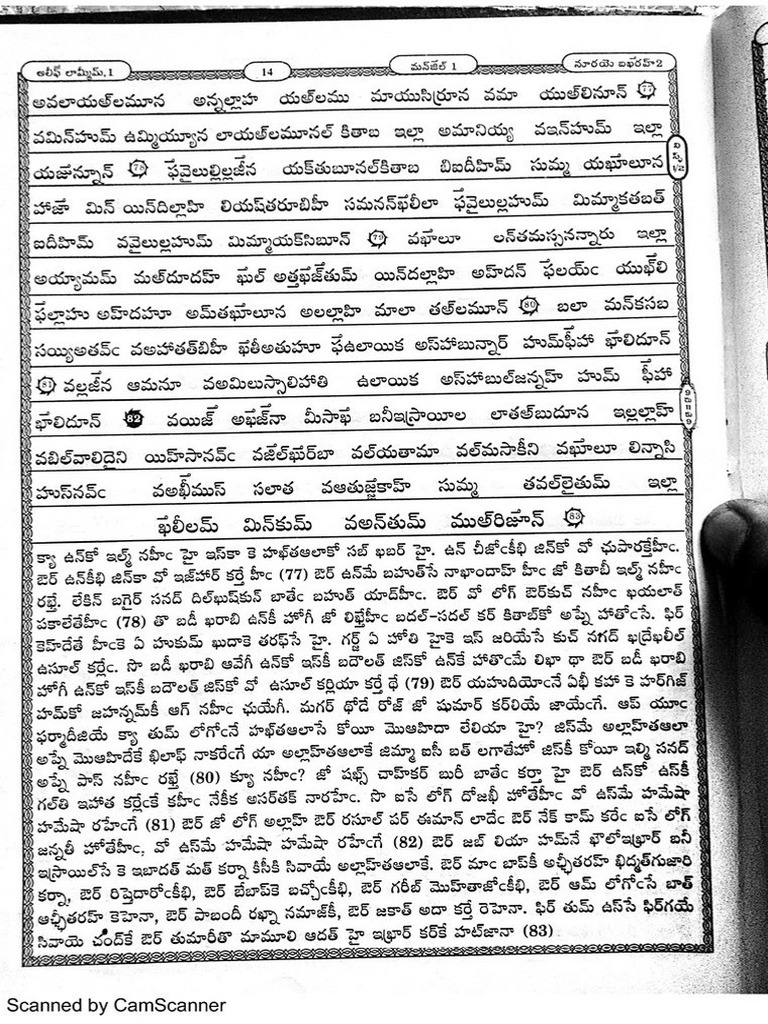 అలీఫ్ లామ్మీమ్,1
14
మన్‌జిల్ 1
సూరయె బఖరహ్2
అవలాయఅ్‌లమూన అన్నల్లాహ యఅ్‌లము మాయుసిర్రూన వమా యుఅ్‌లినూన్ 77
వమిన్‌హుమ్ ఉమ్మియ్యూన లాయఅ్‌లమూనల్ కితాబ ఇల్లా అమానియ్య వఇన్‌హుమ్ ఇల్లా
యజున్నూన్ 78 ఫవైలుల్లిల్లజీన యక్‌తుబూనల్‌కితాబ బిఐదీహిమ్ సుమ్మ యఖూలూన
హాజా మిన్ యిన్‌దిల్లాహి లియష్‌తరూబిహీ సమనన్‌ఖలీలా ఫవైలుల్లహుమ్ మిమ్మాకతబత్
ఐదీహిమ్ వవైలుల్లహుమ్ మిమ్మాయక్‌సిబూన్ 79 వఖాలూ లన్‌తమస్సనన్నారు ఇల్లా
అయ్యామమ్ మఅ్‌దూదహ్ ఖుల్ అత్తఖజ్‌తుమ్ యిన్‌దల్లాహి అహ్‌దన్ ఫలయ్ఁ యుఖ్‌లి
ఫల్లాహు అహ్‌దహూ అమ్‌తఖూలూన అలల్లాహి మాలా తఅ్‌లమూన్ 80 బలా మన్‌కసబ
సయ్యిఅతవ్ఁ వఅహాతత్‌బిహీ ఖతీఅతుహూ ఫఉలాయిక అస్‌హాబున్నార్ హుమ్‌ఫీహా ఖాలిదూన్
81 వల్లజీన ఆమనూ వఅమిలుస్సాలిహాతి ఉలాయిక అస్‌హాబుల్‌జన్నహ్ హుమ్ ఫీహా
ఖాలిదూన్ 82 వయిజ్ అఖజ్‌నా మీసాఖ బనీఇస్రాయీల లాతఅ్‌బుదూన ఇల్లల్లాహ్
వబిల్‌వాలిదైని యిహ్‌సానవ్ఁ వజిల్‌ఖుర్‌బా వల్‌యతామా వల్‌మసాకీని వఖూలూ లిన్నాసి
హుస్‌నవ్ఁ వఅఖీముస్ సలాత వఆతుజ్జకాహ్ సుమ్మ తవల్‌లైతుమ్ ఇల్లా
ఖలీలమ్ మిన్‌కుమ్ వఅన్‌తుమ్ ముఅ్‌రిజూన్ 83
క్యా ఉన్‌కో ఇల్మ్ నహీఁ హై ఇస్‌కా కె హఖ్‌తఆలాకో సబ్ ఖబర్ హై. ఉన్ చీజోఁకీభి జిన్‌కో వో ఛుపారక్తేహీఁ.
ఔర్ ఉన్‌కీభి జిన్‌కా వో ఇజ్‌హార్ కర్తే హీఁ (77) ఔర్ ఉన్‌మే బహుత్‌సే నాఖాందాహ్ హీఁ జో కితాబీ ఇల్మ్ నహీఁ
రఖ్తే. లేకిన్ బగైర్ సనద్ దిల్‌ఖుష్‌కున్ బాతేఁ బహుత్ యాద్‌హీఁ. ఔర్ వో లోగ్ ఔర్‌కుచ్ నహీఁ ఖయలాత్
పకాలేతేహీఁ (78) తొ బడీ ఖరాబి ఉన్‌కీ హోగీ జో లిఖ్తేహీఁ బదల్-సదల్ కర్ కితాబ్‌కో అప్నే హాతోఁసే. ఫిర్
కెహ్‌దేతే హీఁకె ఏ హుకుమ్ ఖుదాకె తరఫ్‌సే హై. గర్జ్ ఏ హోతి హైకె ఇస్ జరియేసే కుచ్ నగద్ ఖద్రేఖలీల్
ఉసూల్ కర్లేఁ. సొ బడీ ఖరాబి ఆవేగీ ఉన్‌కో ఇస్‌కీ బదౌలత్ జిస్‌కో ఉన్‌కే హాతోఁమే లిఖా థా ఔర్ బడీ ఖరాబి
హోగీ ఉన్‌కో ఇస్‌కీ బదౌలత్ జిస్‌కో వో ఉసూల్ కర్లియా కర్తే థే (79) ఔర్ యహుదియోఁనే ఏభీ కహా కె హర్‌గిజ్
హమ్‌కో జహన్నమ్‌కీ ఆగ్ నహీఁ ఛుయేగీ. మగర్ థోడే రోజ్ జో షుమార్ కర్‌లియే జాయేంగే. ఆప్ యూఁ
ఫర్మాదీజియే క్యా తుమ్ లోగోఁనే హఖ్‌తఆలాసే కోయీ మొఆహిదా లేలియా హై? జిస్‌మే అల్లాహ్‌తఆలా
అప్నే మొఆహిదేకే ఖిలాఫ్ నాకరేఁగే యా అల్లాహ్‌తఆలాకే జిమ్మా ఐసీ బత్ లగాతేహో జిస్‌కీ కోయీ ఇల్మి సనద్
అప్నే పాస్ నహీఁ రఖ్తే (80) క్యూ నహీఁ? జో షఖ్స్ చాహ్‌కర్ బురీ బాతేఁ కర్తా హై ఔర్ ఉస్‌కో ఉన్‌కీ
గల్‌తి ఇహాత కర్లేఁకే కహీఁ నేకీక అసర్‌తక్ నారహేఁ. సొ ఐసే లోగ్ దోజఖీ హోతేహీఁ వో ఉస్‌మే హమేషా
హమేషా రహేఁగే (81) ఔర్ జో లోగ్ అల్లాహ్ ఔర్ రసూల్ పర్ ఈమాన్ లాదేఁ ఔర్ నేక్ కామ్ కరేఁ ఐసే లోగ్
జన్నతీ హోతేహీఁ, వో ఉస్‌మే హమేషా హమేషా రహేఁగే (82) ఔర్ జబ్ లియా హమ్‌నే ఖౌలోఇఖ్రార్ బనీ
ఇస్రాయిల్‌సే కె ఇబాదత్ మత్ కర్నా కిసీకి సివాయే అల్లాహ్‌తఆలాకే. ఔర్ మాఁ బాప్‌కీ అచ్ఛీతరహ్ ఖిద్మత్‌గుజారి
కర్నా, ఔర్ రిష్తెదారోఁకీభి, ఔర్ బేబాప్‌కె బచ్చోఁకీభి, ఔర్ గరీబ్ మొహ్‌తాజోఁకీభి, ఔర్ ఆమ్ లోగోఁసే బాత్
అచ్ఛీతరహ్ కెహెనా, ఔర్ పాబందీ రఖ్నా నమాజ్‌కీ, ఔర్ జకాత్ అదా కర్తే రెహెనా. ఫిర్ తుమ్ ఉస్‌సే ఫిర్‌గయే
సివాయె చంద్‌కే ఔర్ తుమారీతొ మామూలి ఆదత్ హై ఇఖ్రార్ కర్‌కే హట్‌జానా (83)
Scanned by CamScanner